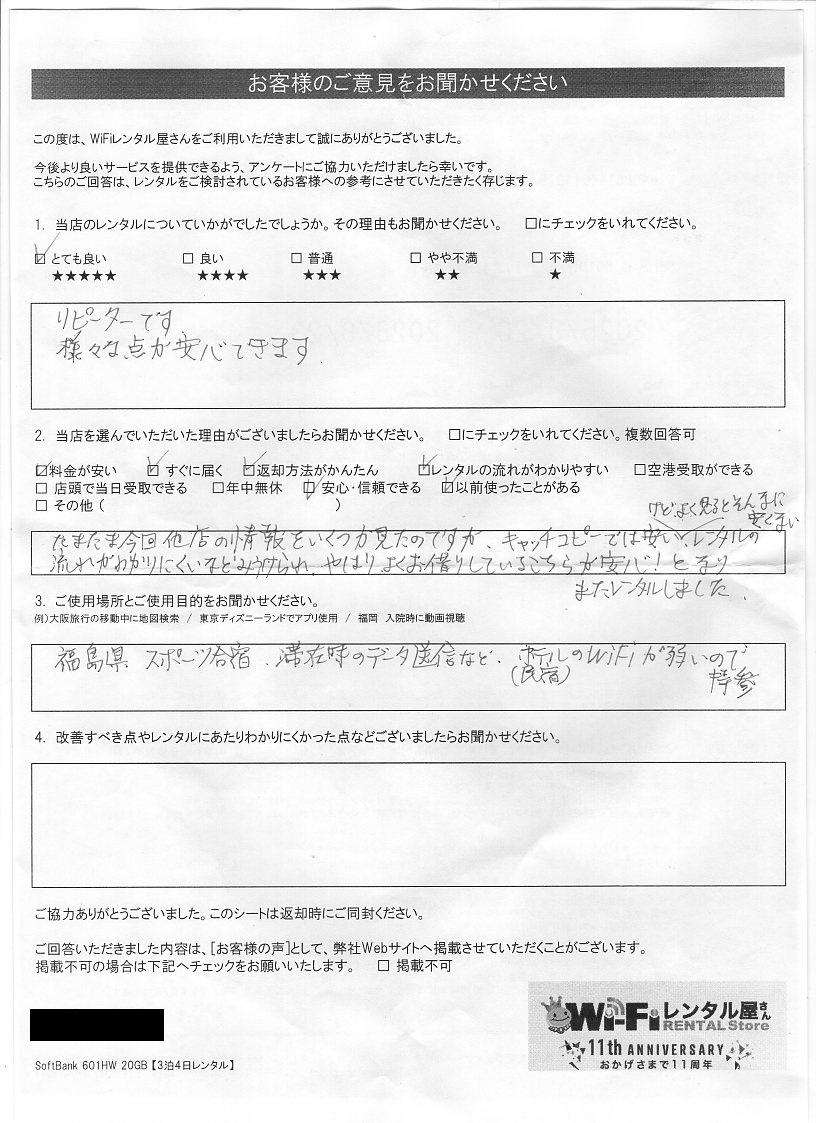 お客様のご意見をお聞かせください
この度は、WiFiレンタル屋さんをご利用いただきまして誠にありがとうございました。
今後より良いサービスを提供できるよう、アンケートにご協力いただけましたら幸いです。
こちらのご回答は、レンタルをご検討されているお客様への参考にさせていただきたく存じます。
1. 当店のレンタルについていかがでしたでしょうか。その理由もお聞かせください。 □にチェックをいれてください。
☑ とても良い □ 良い □ 普通 □ やや不満 □ 不満
★★★★★ ★★★★ ★★★ ★★ ★
リピーターです
様々な点が安心できます.
2. 当店を選んでいただいた理由がございましたらお聞かせください。 □にチェックをいれてください。複数回答可
☑料金が安い ☑ すぐに届く ☑返却方法がかんたん ☑レンタルの流れがわかりやすい □空港受取ができる
□ 店頭で当日受取できる □年中無休 ☑ 安心・信頼できる ☑以前使ったことがある
□ その他( )
けどよく見るとそんなに
安くない
たまたま今回他店の情報をいくつか見たのですが、キャッチコピーでは安い、レンタルの
流れがわかりにくいなどみうけられ、やはりよくお借りしているこちらが安心!となり
またレンタルしました.
3. ご使用場所とご使用目的をお聞かせください。
例)大阪旅行の移動中に地図検索 / 東京ディズニーランドでアプリ使用 / 福岡 入院時に動画視聴
福島県 スポーツ合宿、滞在時のデータ送信など、ホテルのWiFiが弱いので
(民宿) 持参
4. 改善すべき点やレンタルにあたりわかりにくかった点などございましたらお聞かせください。
ご協力ありがとうございました。このシートは返却時にご同封ください。
ご回答いただきました内容は、[お客様の声]として、弊社Webサイトへ掲載させていただくことがございます。
掲載不可の場合は下記へチェックをお願いいたします。 □ 掲載不可
Wi-Fiレンタル屋さん
RENTAL Store
11th ANNIVERSARY
おかげさまで11周年
SoftBank 601HW 20GB【3泊4日レンタル】